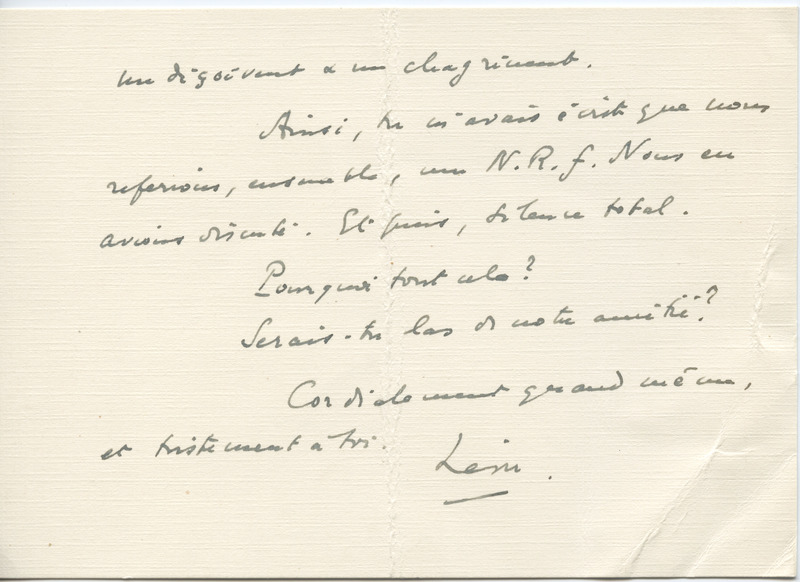 me déçoivent & me chagrinent.
Ainsi, tu m'avais écrit que nous
referions, ensemble, une N.R.f. Nous en
avions discuté. Et puis, silence total.
Pourquoi tout cela?
Serais-tu las de notre amitié?
Cordialement quand même,
et tristement à toi.